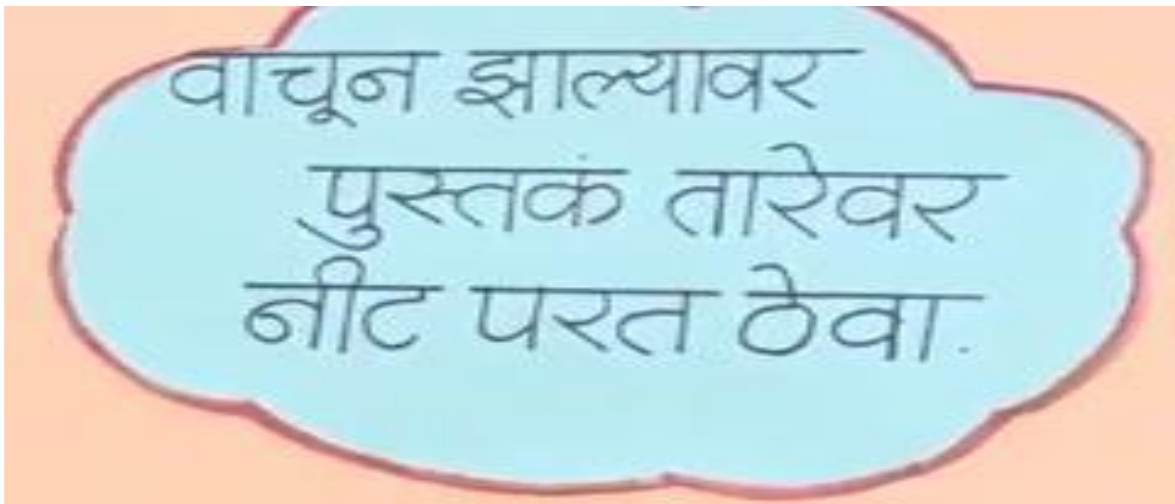 वाचून झाल्यावर
पुस्तकं तारेवर
नीट परत ठेवा.